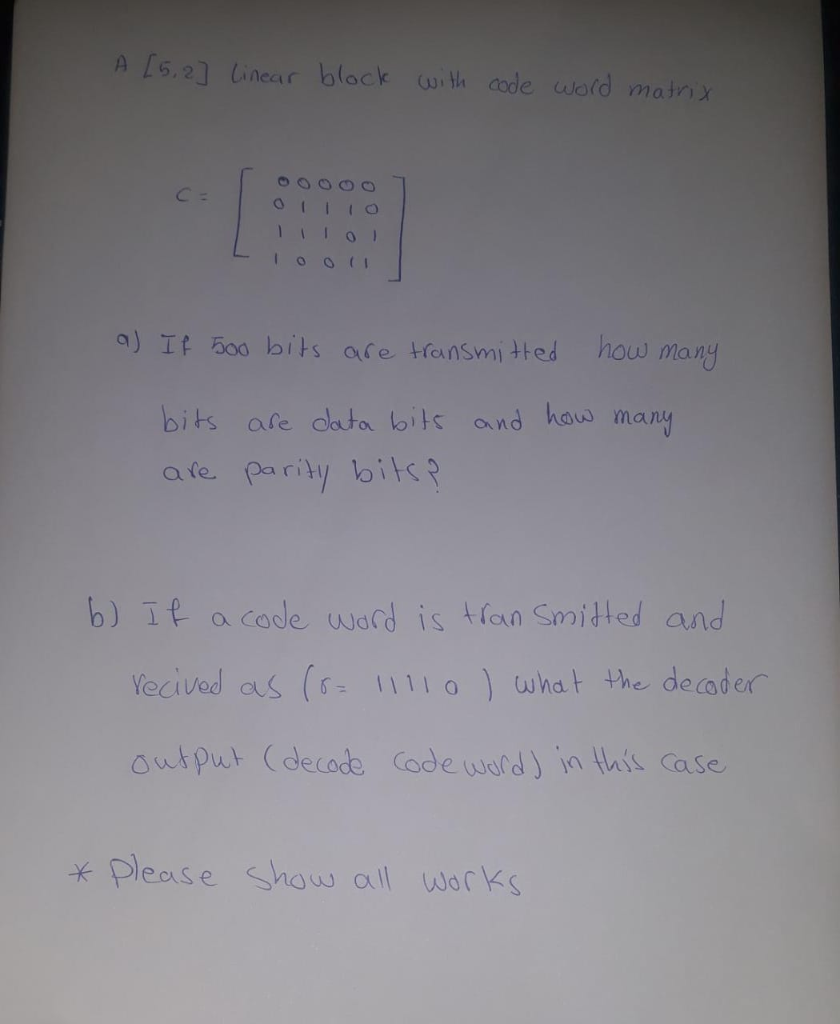 A [5,2] Linear block with code word matrix
C = [ 00000
01110
11101
10011 ]
a) If 500 bits are transmitted how many
bits are data bits and how many
are parity bits?
b) If a code word is transmitted and
recived as (r= 11110 ) what the decoder
output (decode codeword) in this case
* Please show all works